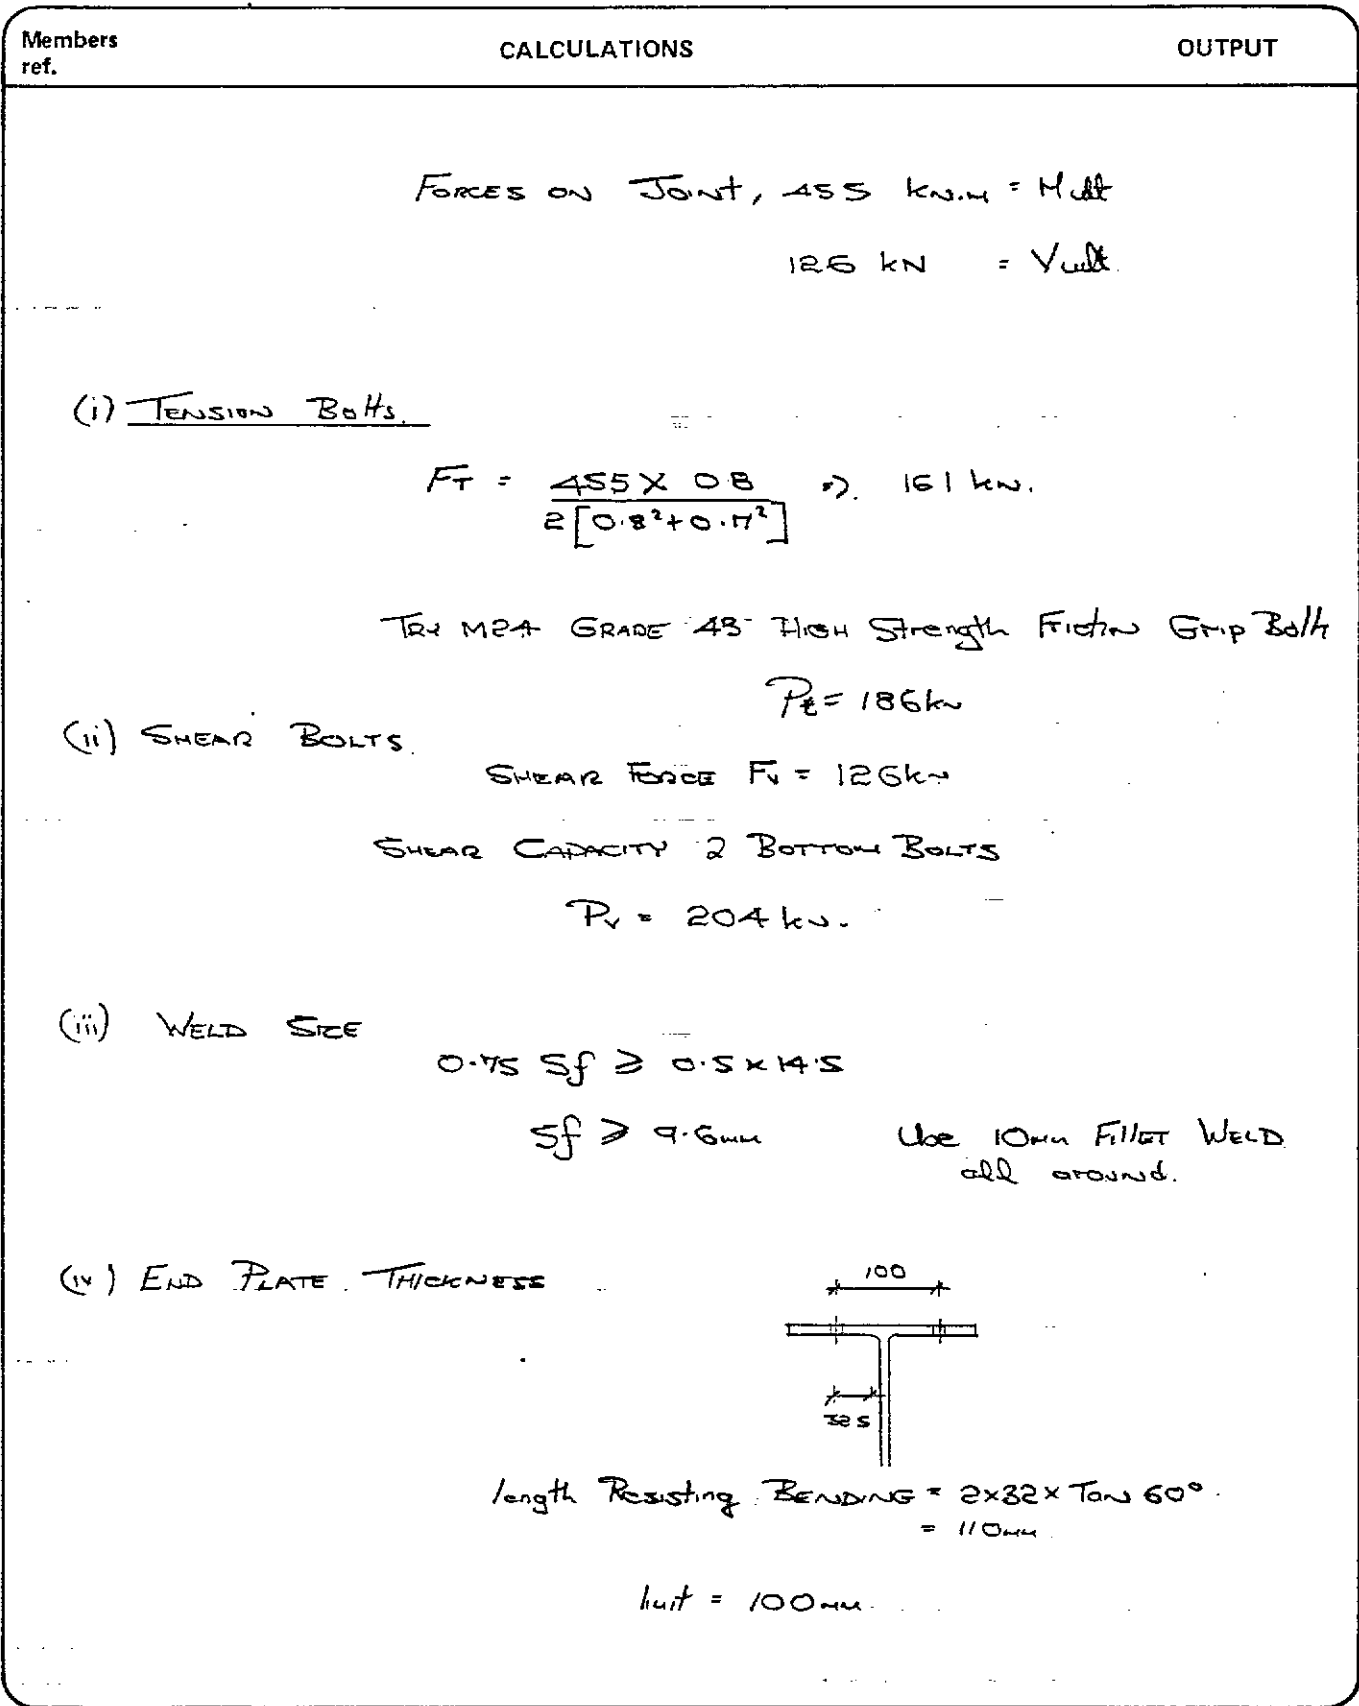 Members
ref.
CALCULATIONS
OUTPUT
FORCES ON JOINT, 455 kN.M = Mult
126 kN = Vult.
(i) TENSION Bolts.
FT = 455 X 0.8 / 2[0.8²+0.7²] => 161 kN.
TRY M24 GRADE 43 HIGH Strength Friction Grip Bolts
Pt = 186kN
(ii) SHEAR BOLTS.
SHEAR FORCE Fv = 126kN
SHEAR CAPACITY 2 BOTTOM BOLTS
Pv = 204 kN.
(iii) WELD SIZE
0.75 Sf ≥ 0.5 x 14.5
Sf ≥ 9.6mm Use 10mm FILLET WELD
all around.
(iv) END PLATE THICKNESS
100
32.5
length Resisting BENDING = 2x32x Tan 60°.
= 110mm.
limit = 100mm.